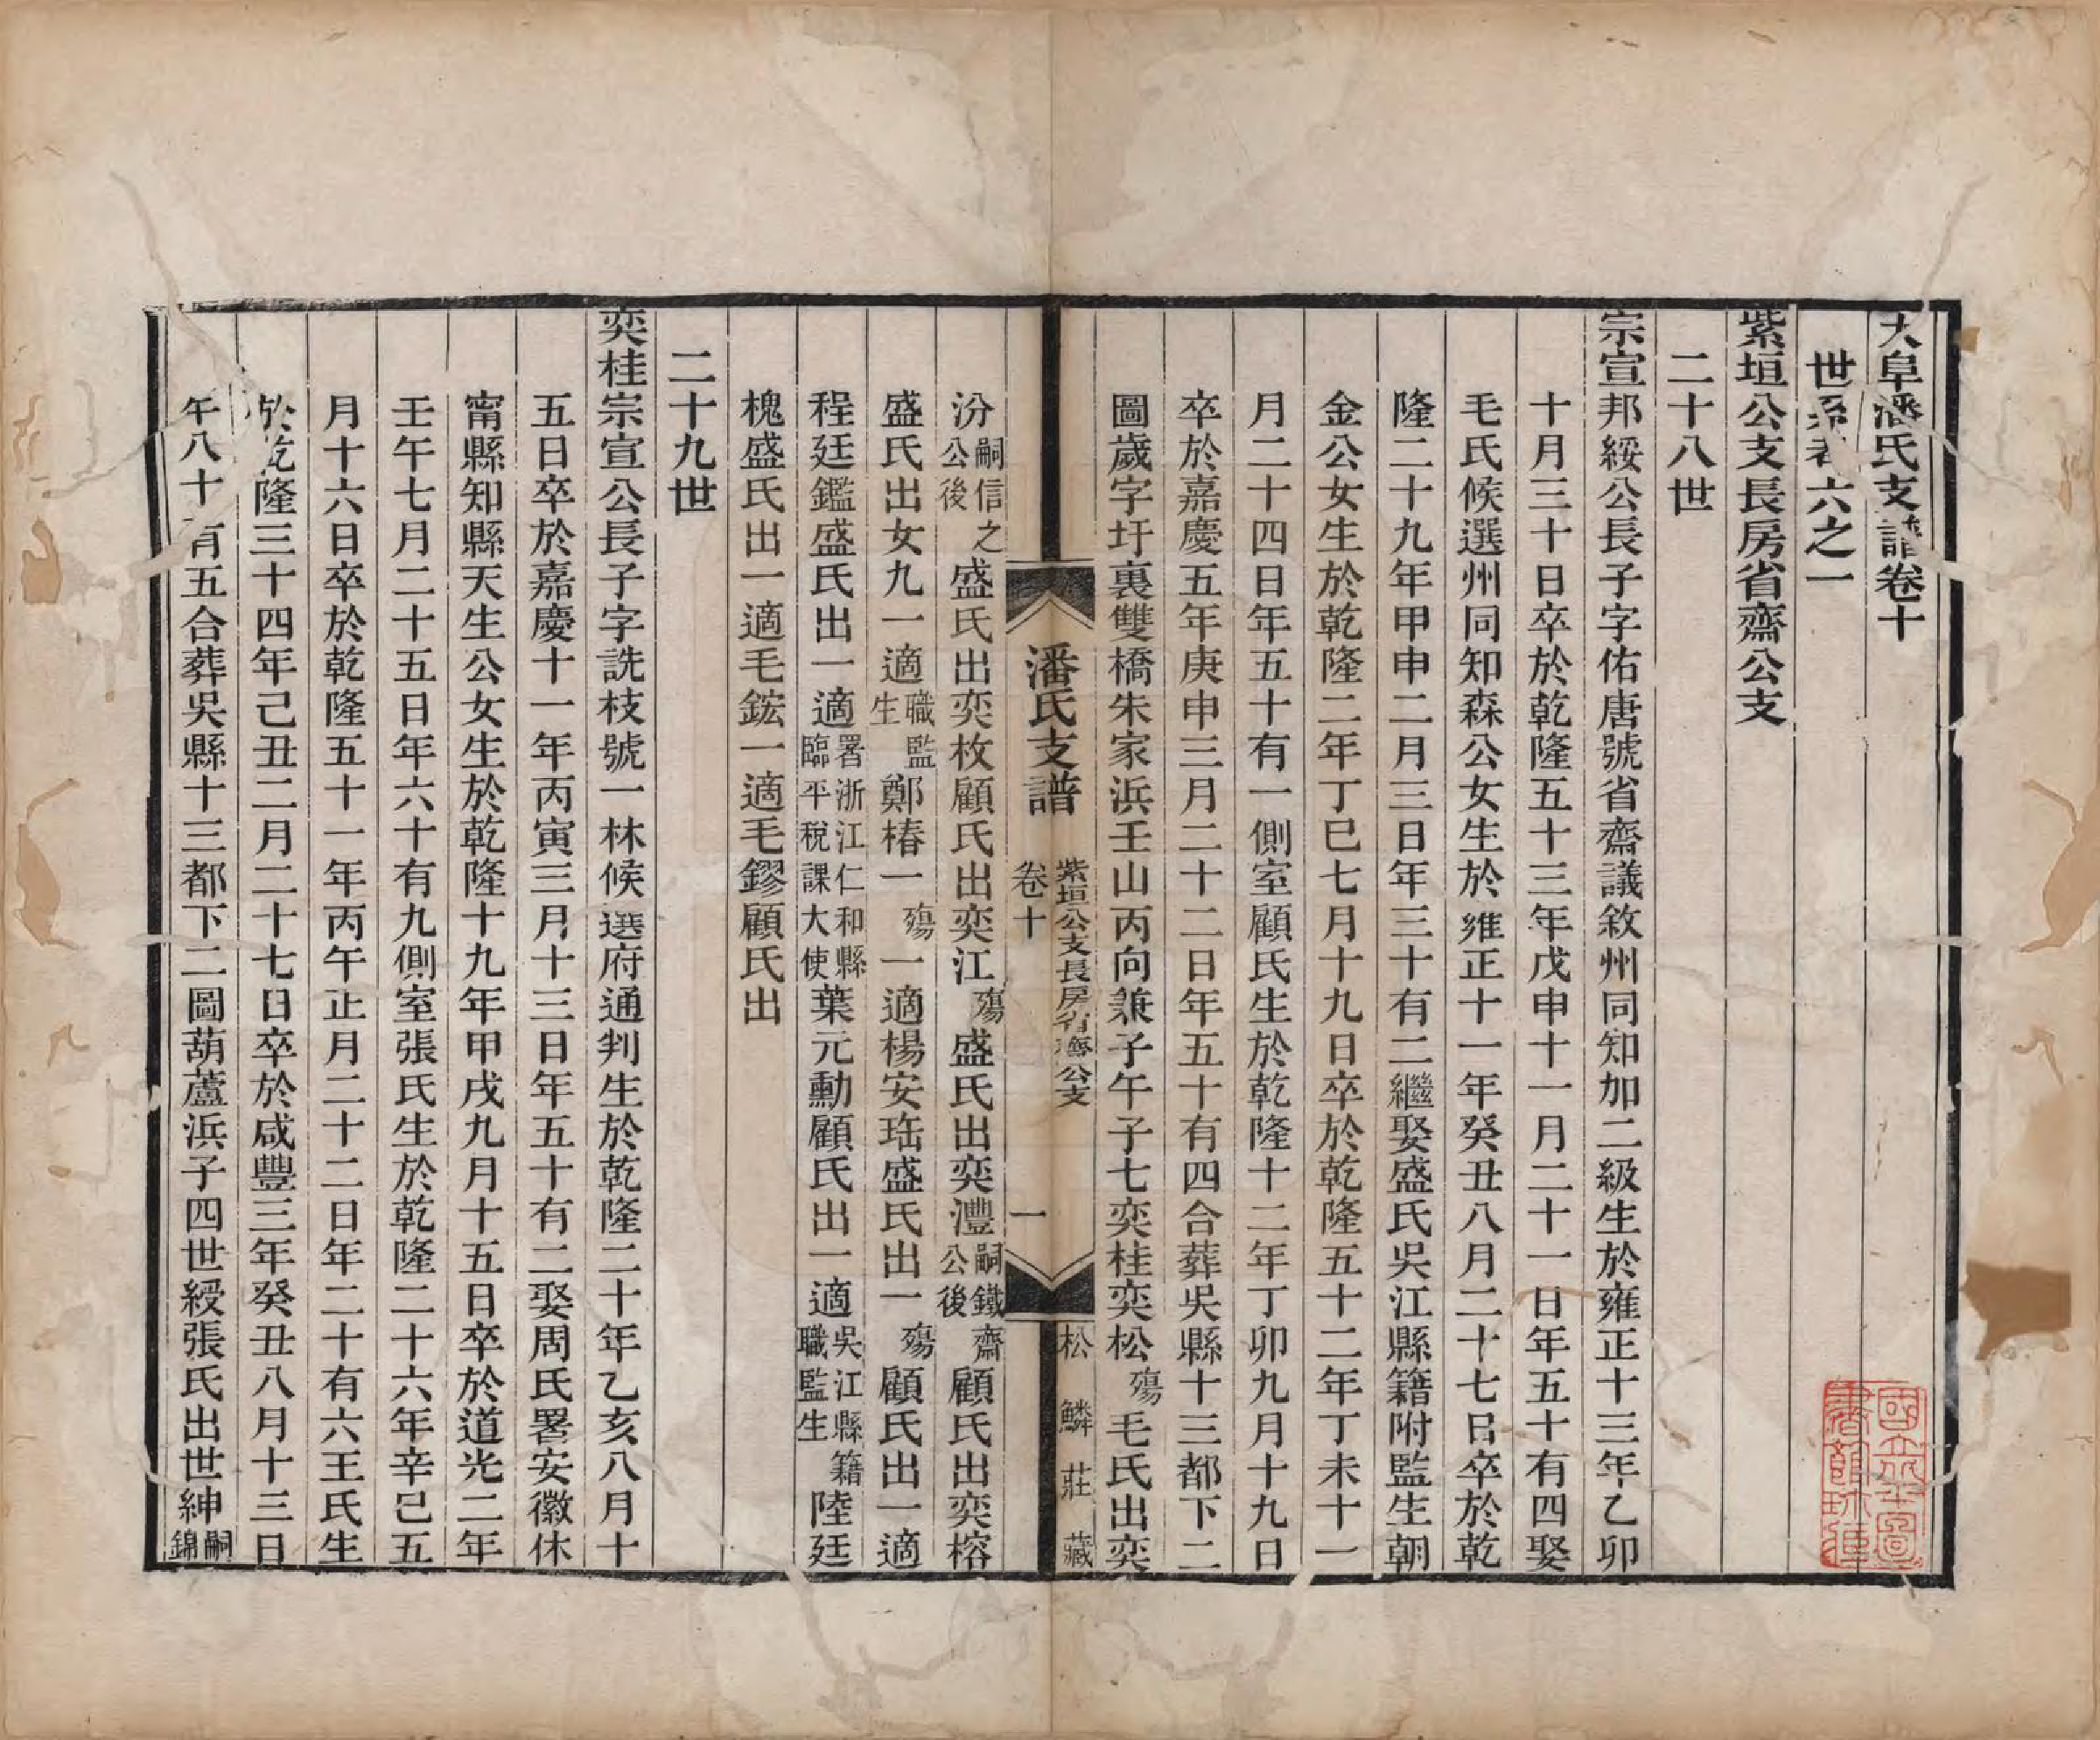 大阜潘氏支譜卷十
世系考六之一
紫垣公支長房省齋公支
二十八世
宗宣邦綏公長子字佑唐號省齋議敘州同知加二級生於雍正十三年乙卯
十月三十日卒於乾隆五十三年戊申十一月二十一日年五十有四娶
毛氏候選州同知森公女生於雍正十一年癸丑八月二十七日卒於乾
隆二十九年甲申二月三日年三十有二繼娶盛氏吳江縣籍附監生朝
金公女生於乾隆二年丁巳七月十九日卒於乾隆五十二年丁未十一
月二十四日年五十有一側室顧氏生於乾隆十二年丁卯九月十九日
卒於嘉慶五年庚申三月二十二日年五十有四合葬吳縣十三都下二
圖歲字圩裏雙橋朱家浜壬山丙向兼子午子七奕桂奕松殤毛氏出奕
潘氏支譜
紫垣公支長房省齋公支
卷十
一
松鱗莊藏
汾嗣信之公後盛氏出奕枚顧氏出奕江殤盛氏出奕灃嗣鐵齋公後顧氏出奕榕
盛氏出女九一適職監生鄭椿一殤一適楊安珤盛氏出一殤顧氏出一適
程廷鑑盛氏出一適署浙江仁和縣臨平稅課大使葉元勳顧氏出一適吳江縣籍職監生陸廷
槐盛氏出一適毛鋐一適毛鏐顧氏出
二十九世
奕桂宗宣公長子字詵枝號一林候選府通判生於乾隆二十年乙亥八月十
五日卒於嘉慶十一年丙寅三月十三日年五十有二娶周氏署安徽休
甯縣知縣天生公女生於乾隆十九年甲戌九月十五日卒於道光二年
壬午七月二十五日年六十有九側室張氏生於乾隆二十六年辛巳五
月十六日卒於乾隆五十一年丙午正月二十二日年二十有六王氏生
於乾隆三十四年己丑二月二十七日卒於咸豐三年癸丑八月十三日
年八十有五合葬吳縣十三都下二圖葫蘆浜子四世綬張氏出世紳嗣錦